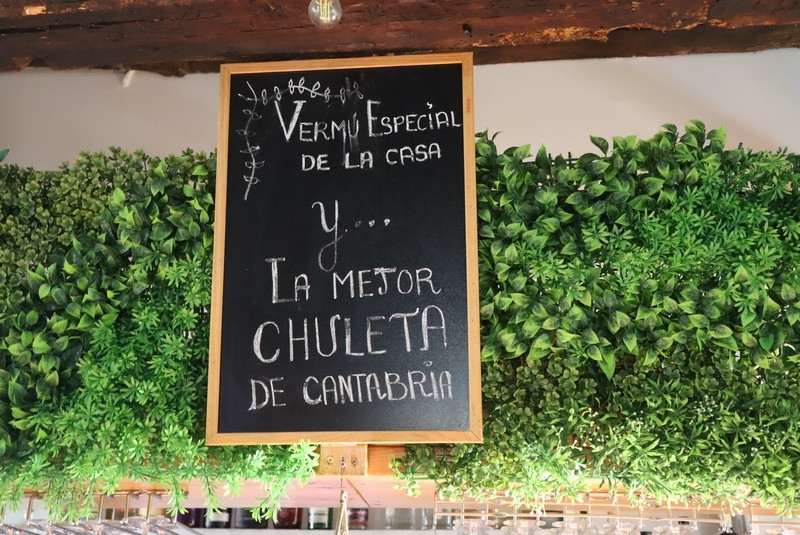 VERMÚ ESPECIAL
DE LA CASA
y...
LA MEJOR
CHULETA
DE CANTABRIA